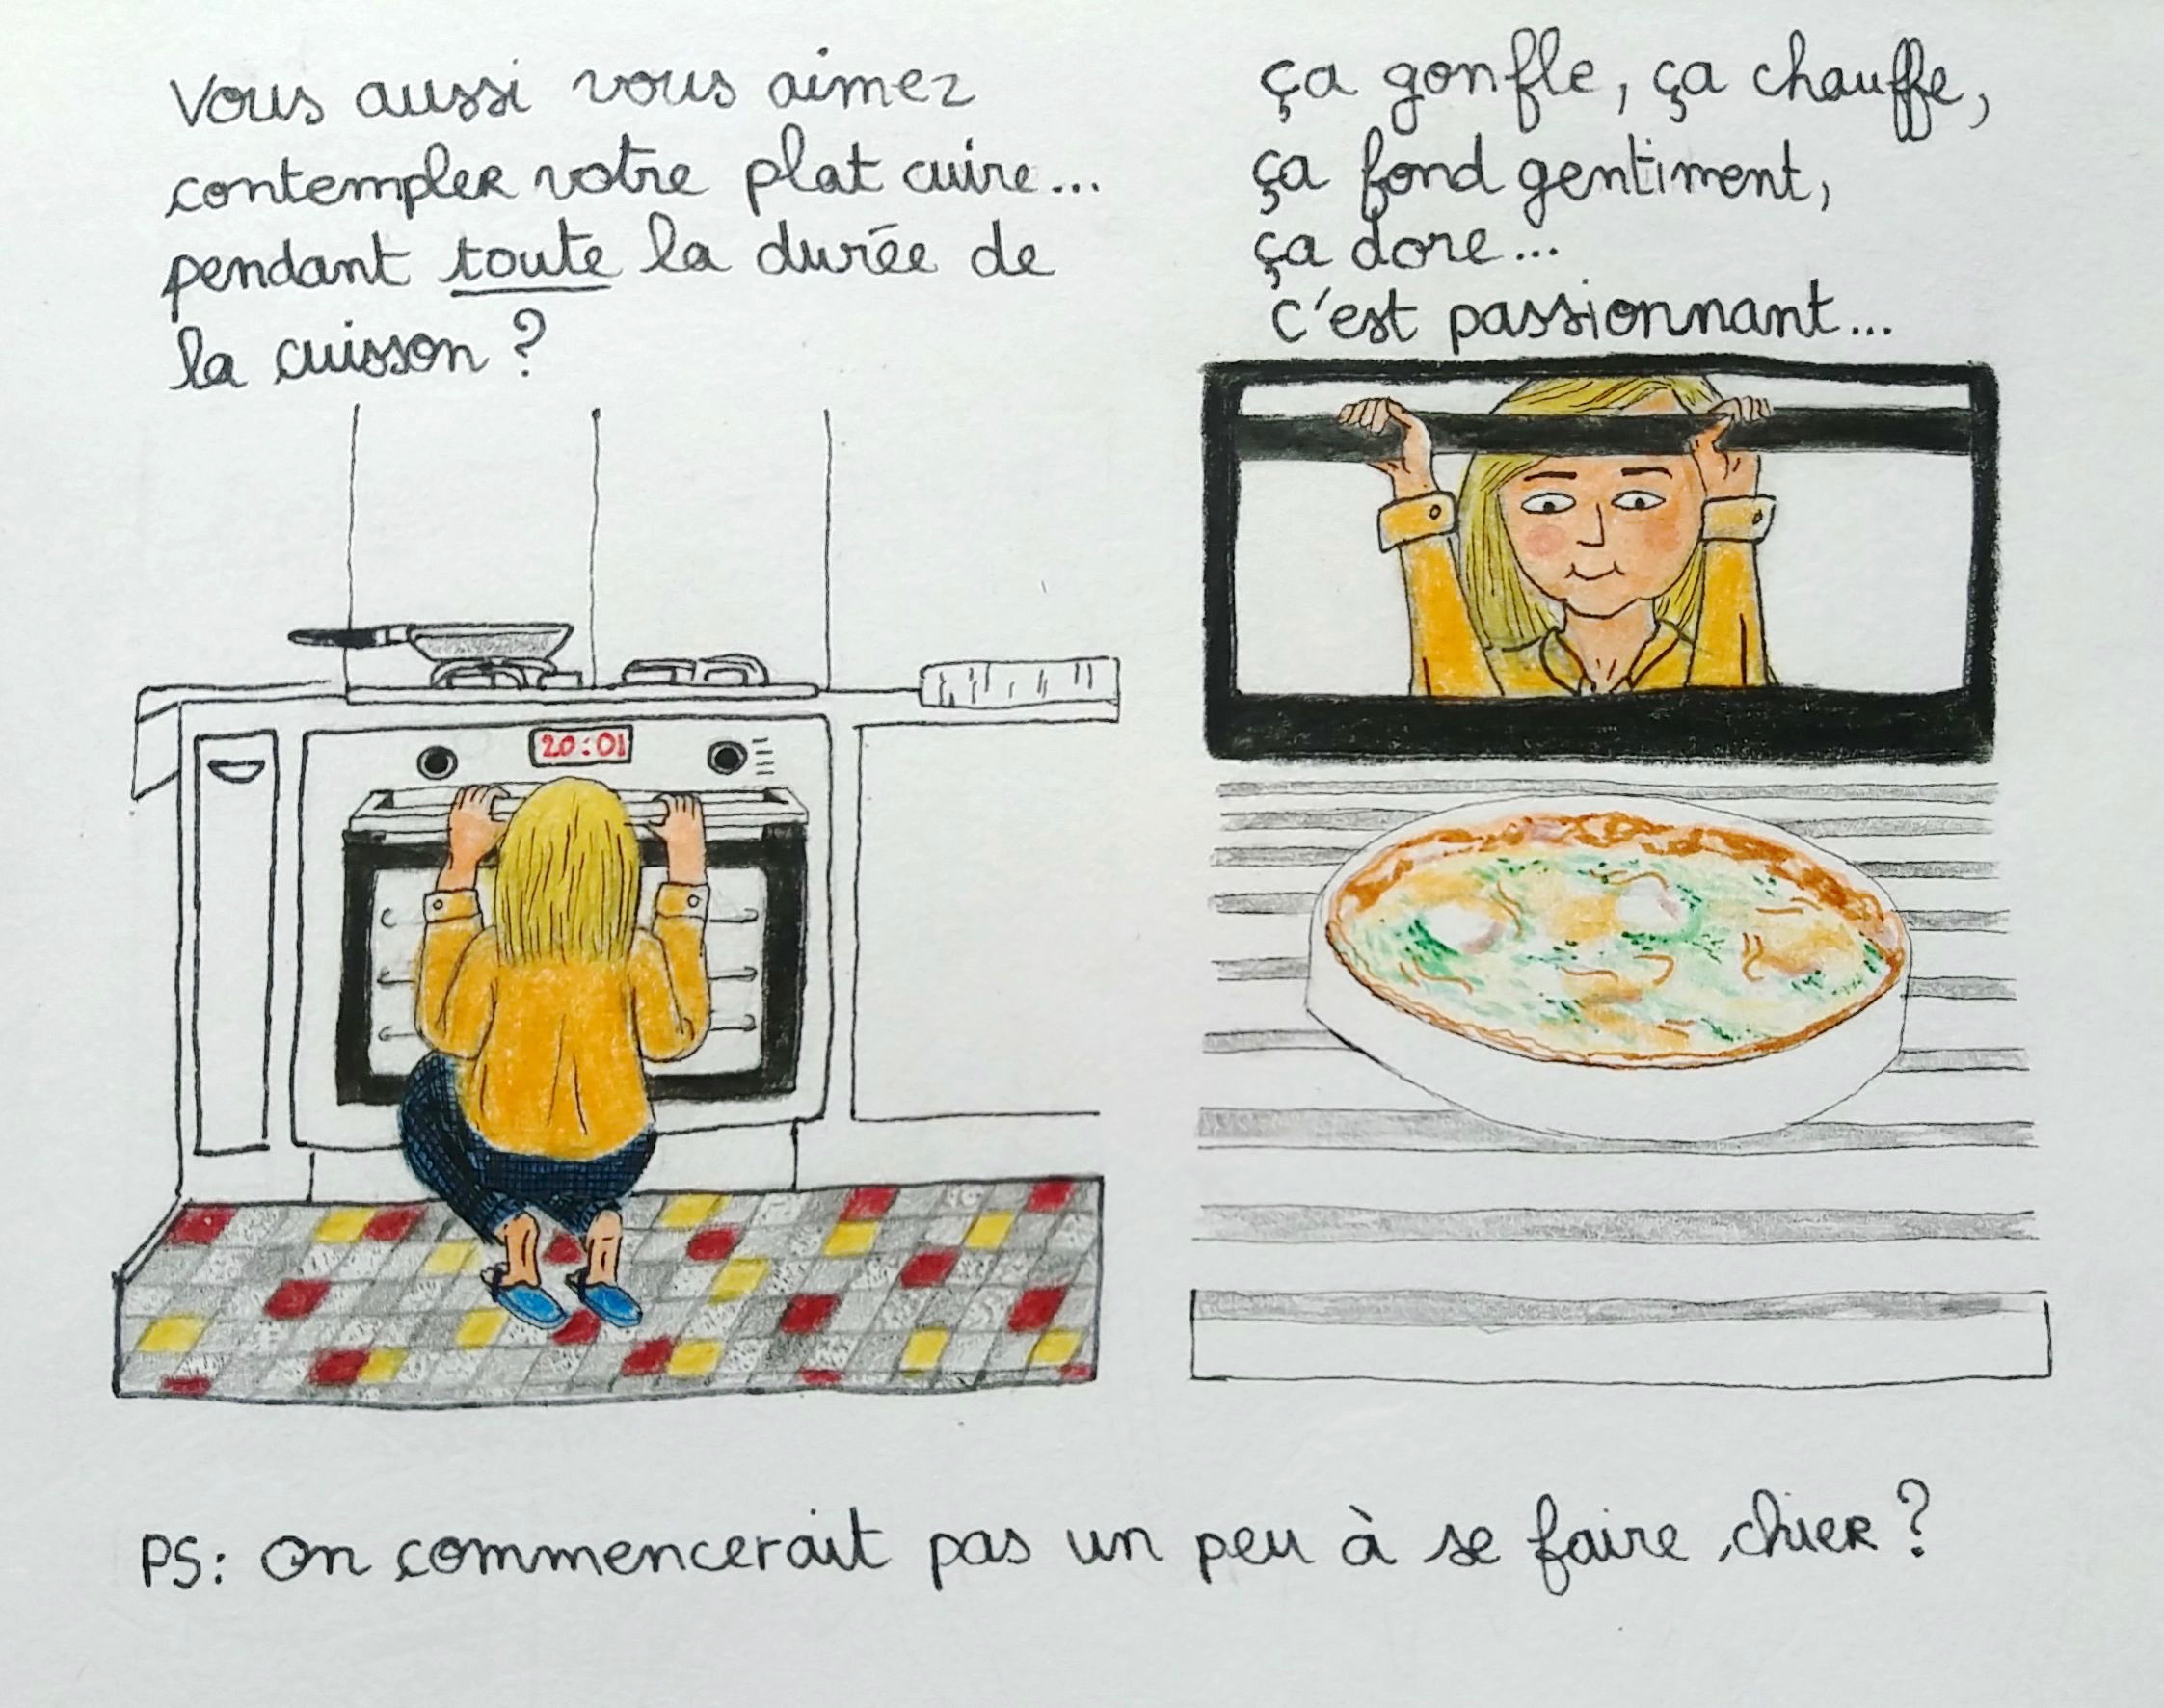 Vous aussi vous aimez
contempler votre plat cuire...
pendant toute la durée de
la cuisson ?
ça gonfle, ça chauffe,
ça fond gentiment,
ça dore...
c'est passionnant...
20:01
PS: On commencerait pas un peu à se faire chier ?